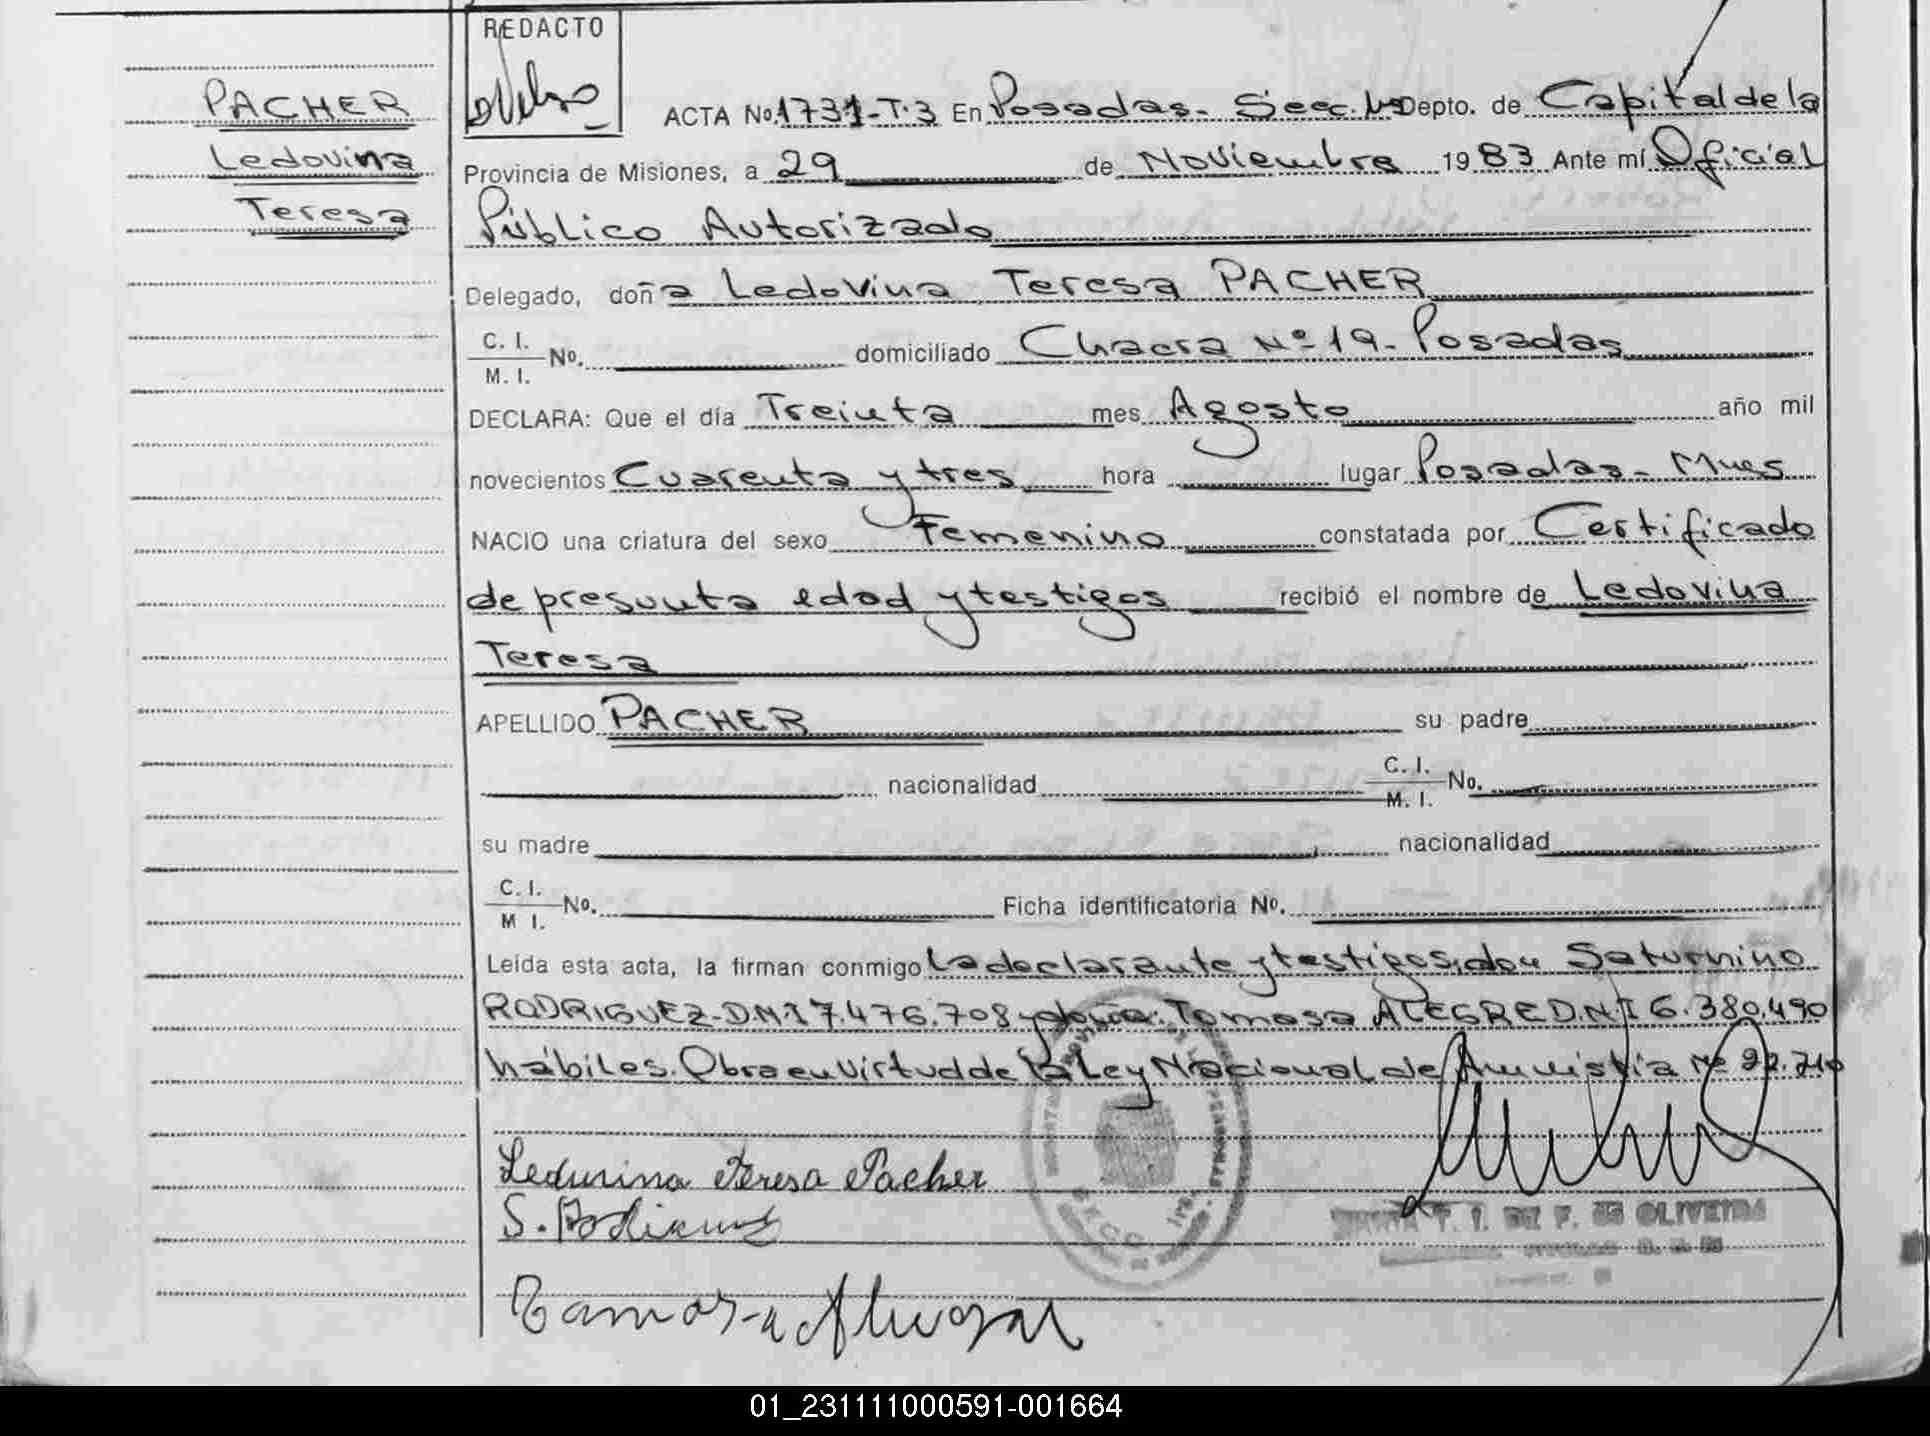 REDACTO
PACHER
Ledovina
Teresa
ACTA No. 1731-T.3 En Posadas- Secc. Depto. de Capital de la
Provincia de Misiones, a 29 de Noviembre 1983 Ante mí Oficial
Público Autorizado
Delegado, doña Ledovina Teresa PACHER
C. I.
M. I. No. domiciliado Chacra Nº 19- Posadas
DECLARA: Que el día Treinta mes Agosto año mil
novecientos Cuarenta y tres hora lugar Posadas- Mnes
NACIO una criatura del sexo Femenino constatada por Certificado
de presunta edad y testigos recibió el nombre de Ledovina
Teresa
APELLIDO PACHER su padre
nacionalidad C. I.
M. I. No.
su madre nacionalidad
C. I.
M I. No. Ficha identificatoria No.
Leída esta acta, la firman conmigo la declarante y testigos, don Saturnino
RODRIGUEZ-D.N.I 7.476.708 y doña: Tomasa ALEGRE D.N.I 6.380.490
hábiles. Obra en virtud de la Ley Nacional de Amnistia Nº 22.710
Ledovina Teresa Pacher
T. I. DE F. DE OLIVEIRA
01_231111000591-001664